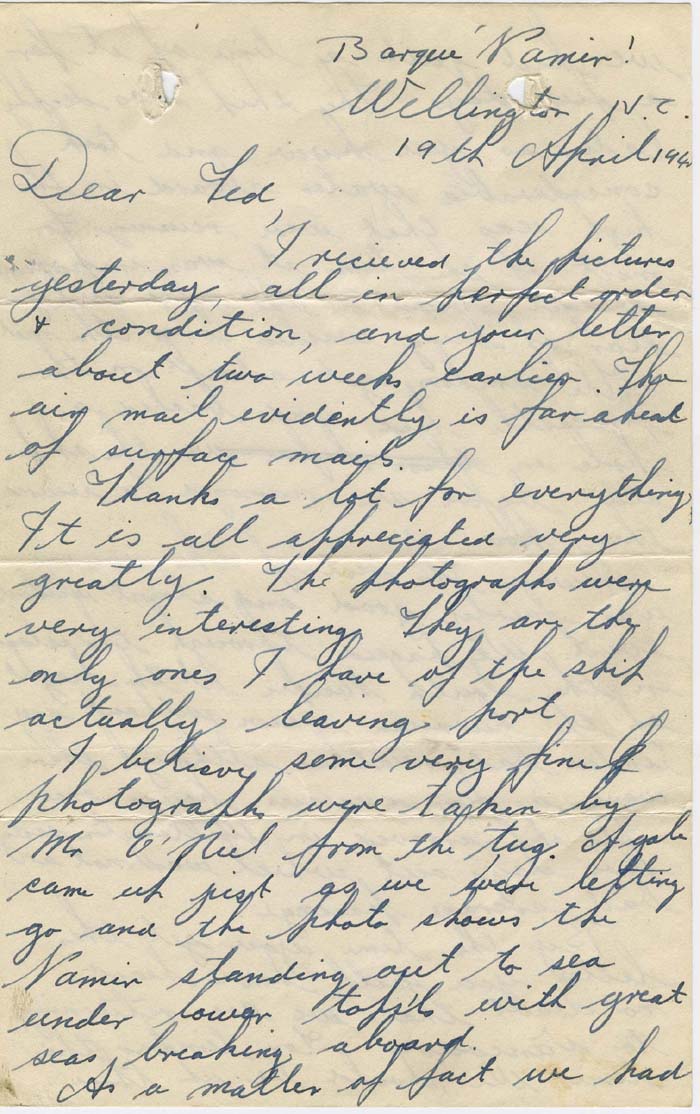 Barque 'Pamir'
Wellington N.Z.
19th April 194
Dear Ted,
I recieved the pictures
yesterday, all in perfect order
& condition, and your letter
about two weeks earlier. The
air mail evidently is far ahead
of surface mails.
Thanks a lot for everything,
It is all appreciated very
greatly. The photographs were
very interesting. They are the
only ones I have of the ship
actually leaving port
I believe some very fine
photographs were taken by
Mr O'Niel from the tug. A gale
came up just as we were letting
go and the photo shows the
Pamir standing out to sea
under lower tops'ls with great
seas breaking aboard.
As a matter of fact we had